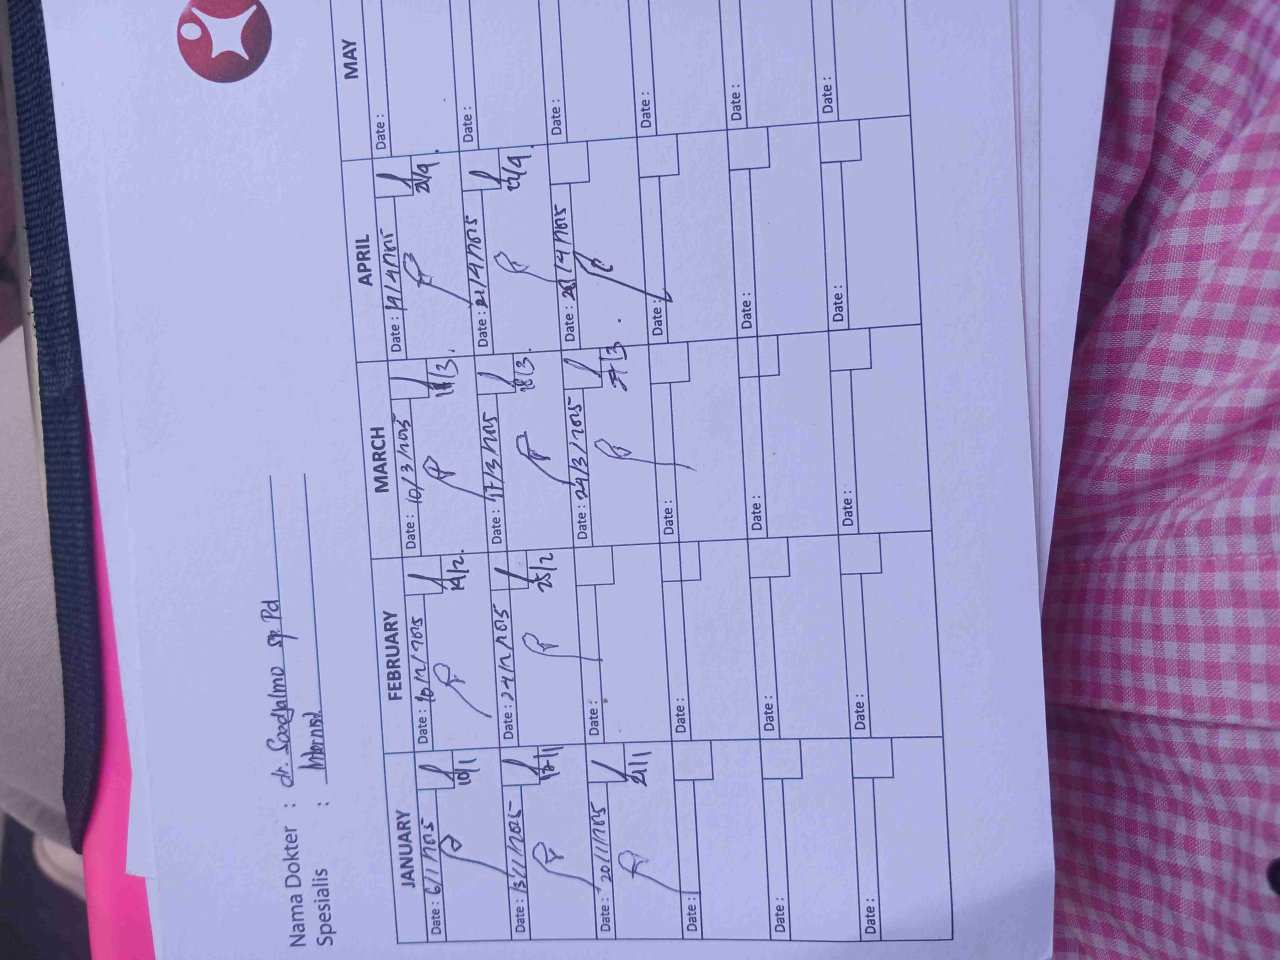 Nama Dokter : dr. Soedjalmo Sp Pd
Spesialis : Internist
JANUARY FEBRUARY MARCH APRIL MAY
Date : 6/1/2025 Date : 10/2/2025 Date : 10/3/2025 Date : 14/4/2025 Date :
10/1 14/2. 11/3. 21/4.
Date : 13/1/2025 Date : 24/2/2025 Date : 17/3/2025 Date : 21/4/2025 Date :
17/1 25/2 18/3. 22/4.
Date : 20/1/2025 Date : Date : 24/3/2025 Date : 28/4/2025 Date :
21/1 27/3
Date : Date : Date : Date : Date :
Date : Date : Date : Date : Date :
Date : Date : Date : Date : Date :